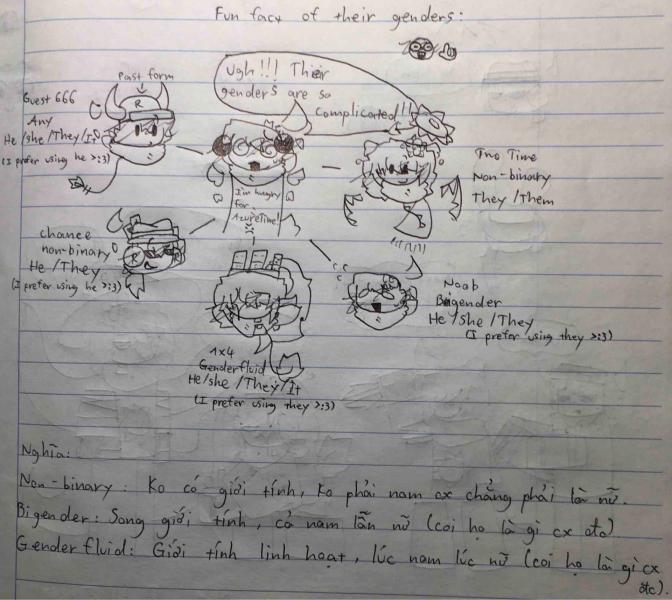 Fun fact of their genders:
Past form
R
Guest 666
Any
He/she/They/It
(I prefer using he >:3)
Ugh!!! Their
genders are so
complicated!!
I'm hungry
for
Azupetime!
Two Time
Non-binary
They/Them
chance
non-binary
He/They
(I prefer using he >:3)
R
R
Noob
Bigender
He/She/They
(I prefer using they >:3)
1x4
Genderfluid
He/she/They/It
(I prefer using they >:3)
Nghĩa:
Non-binary: Ko có giới tính, ko phải nam cx chẳng phải là nữ.
Bigender: Song giới tính, cả nam lẫn nữ (coi họ là gì cx đtc).
Genderfluid: Giới tính linh hoạt, lúc nam lúc nữ (coi họ là gì cx
đtc).